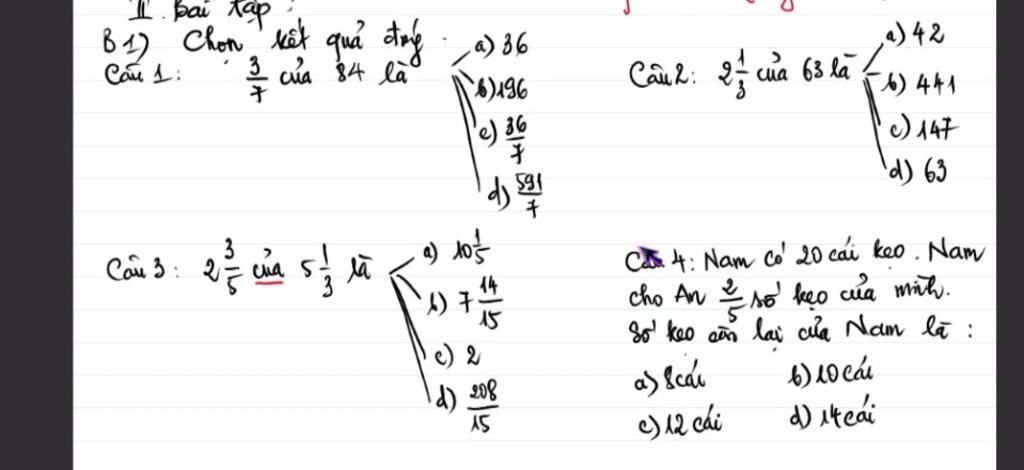 II. Bài tập :
B1) Chọn kết quả đúng.
Câu 1: 3/7 của 84 là
a) 36
b) 196
c) 36/7
d) 591/7
Câu 2: 2 1/3 của 63 là
a) 42
b) 441
c) 147
d) 63
Câu 3 : 2 3/5 của 5 1/3 là
a) 10 1/5
b) 7 14/15
c) 2
d) 208/15
Câu 4: Nam có 20 cái kẹo. Nam
cho An 2/5 số kẹo của mình.
Số kẹo còn lại của Nam là :
a) 8 cái b) 10 cái
c) 12 cái d) 14 cái